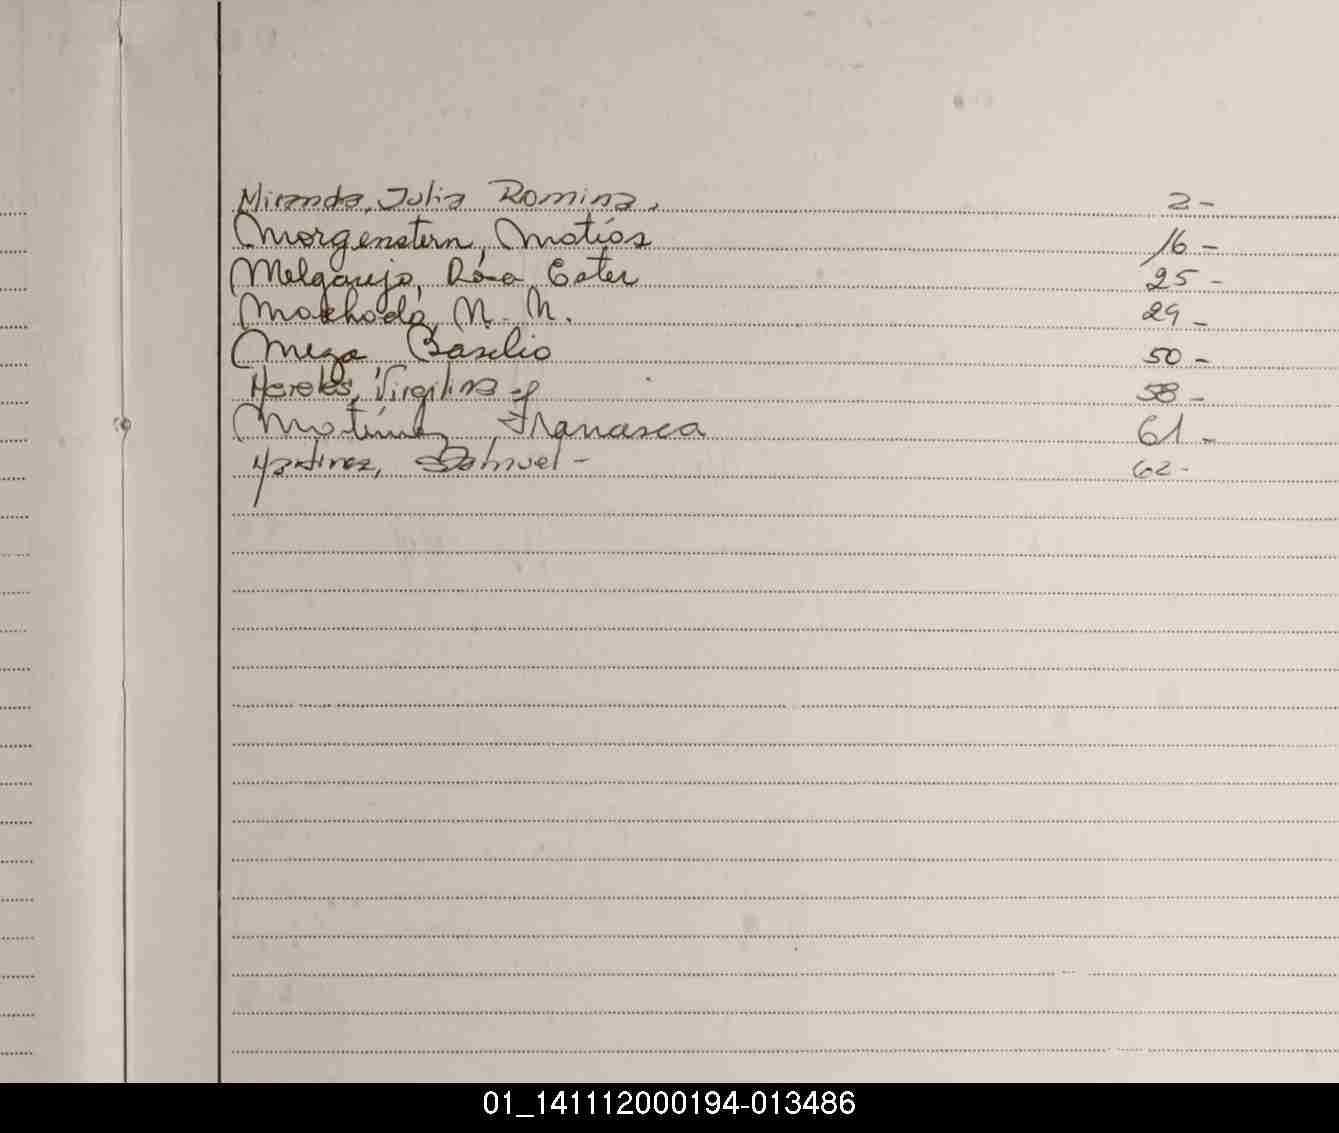 Miranda, Julia Romina. 2-
Morgenstern, Matías 16-
Melgarejo, Ester 25-
N. N. 29-
Meza, Basilio 50-
Mereles, Virgilina 58-
Martínez Francisca 61-
Martinez, Samuel- 62-
01_141112000194-013486